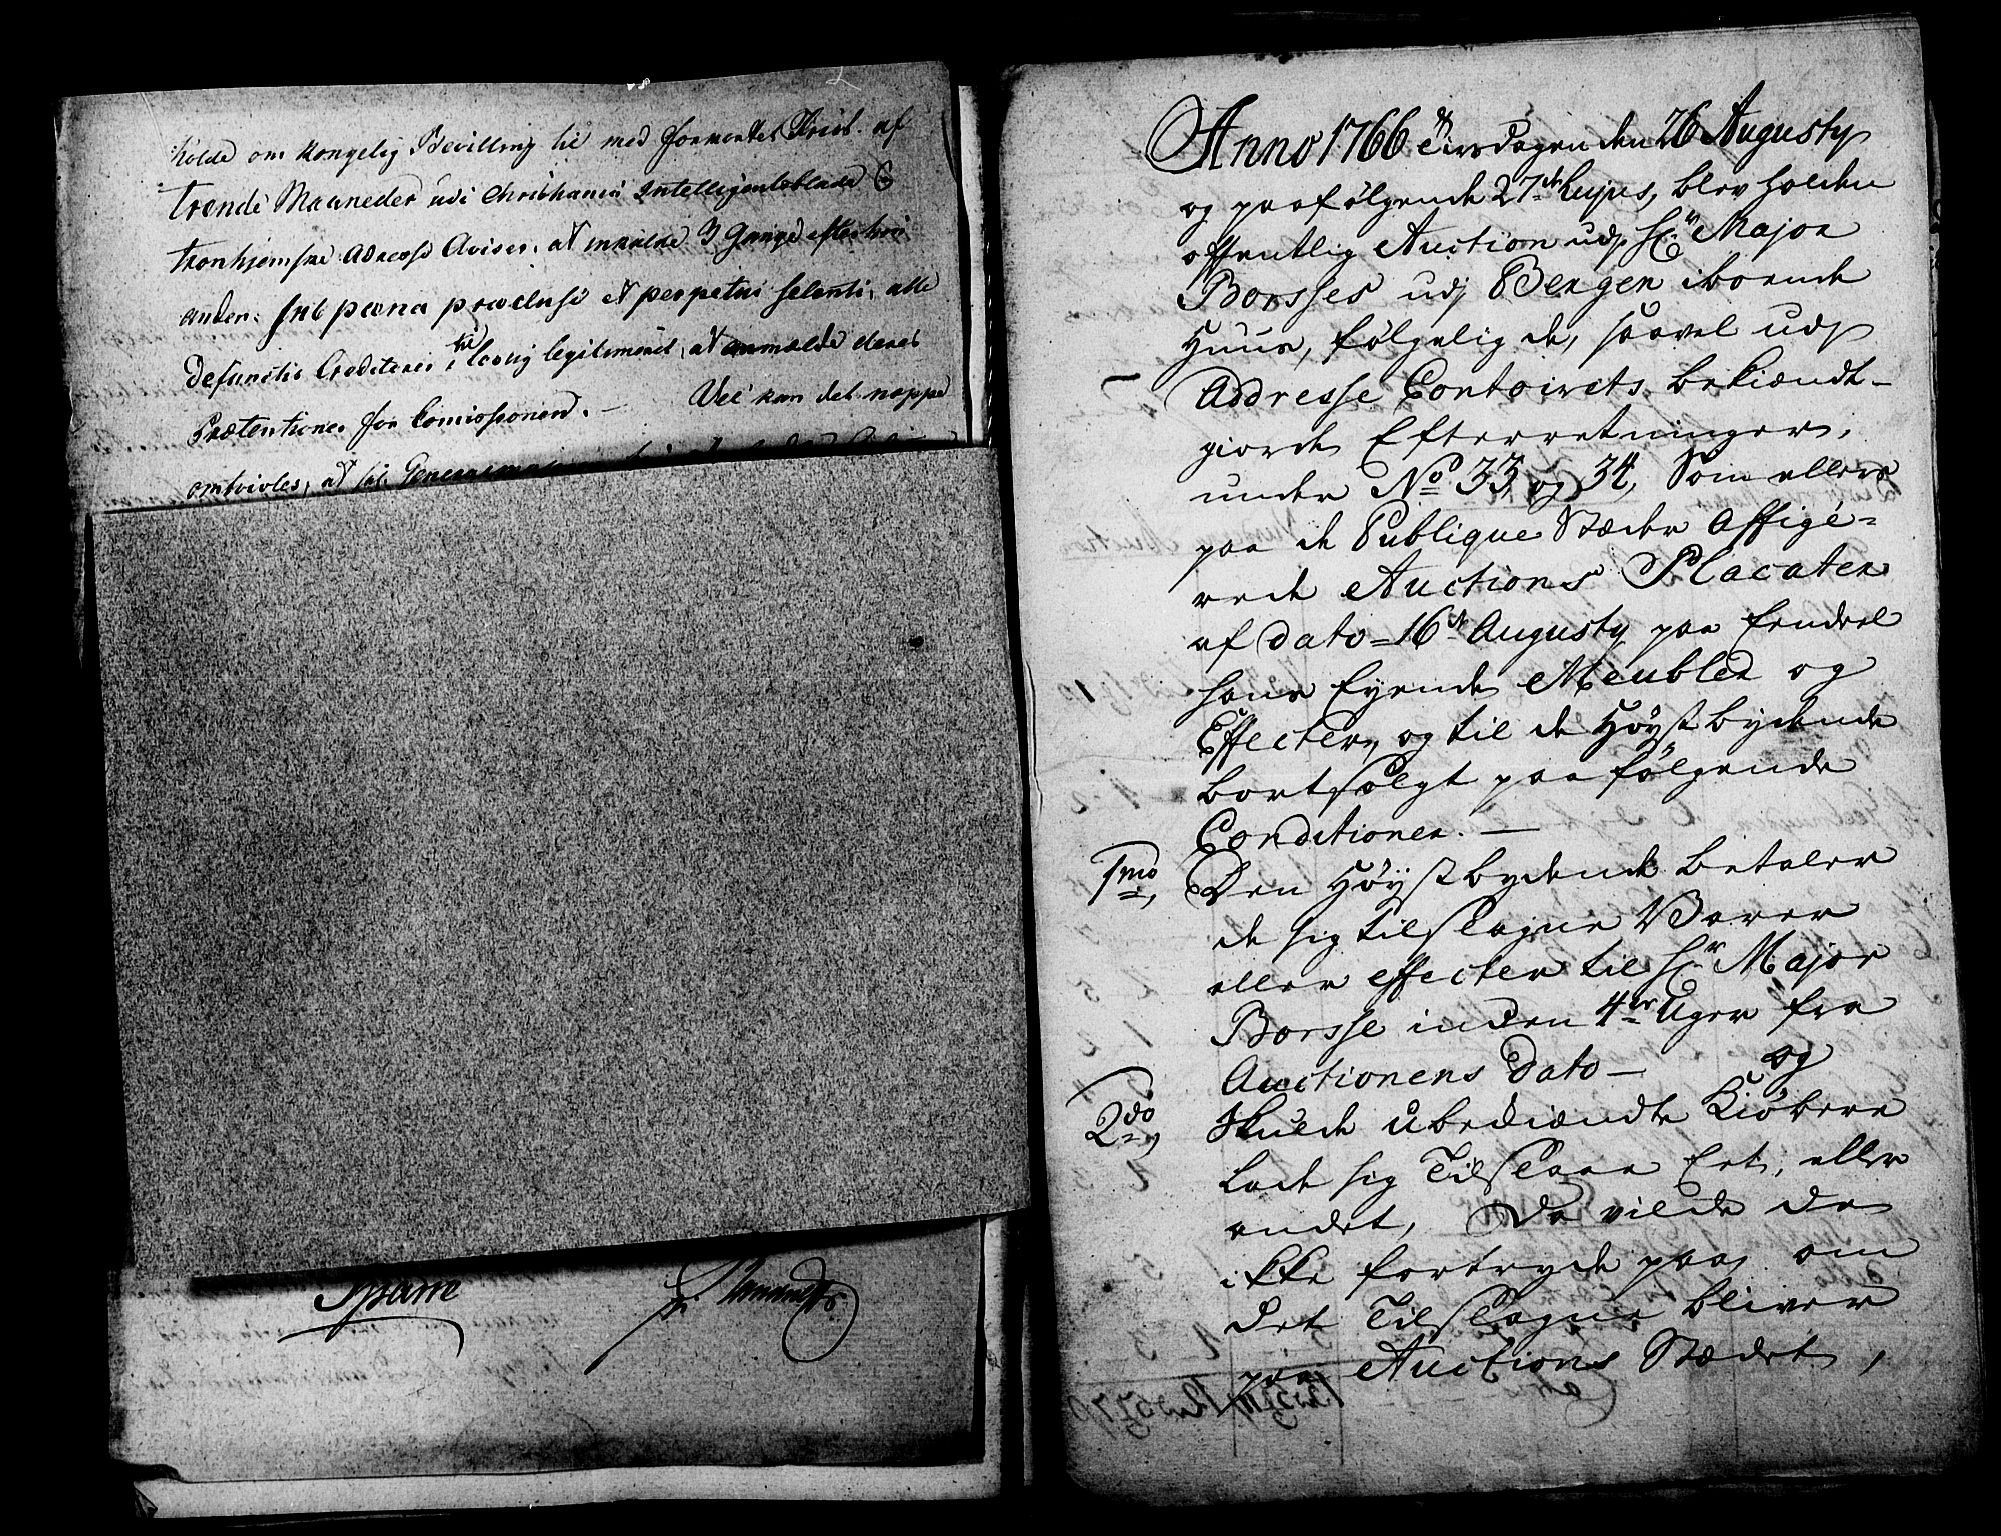 holde om kongelig Bevilling til med forventet Præcl. af
trende Maaneder udi Christiania Intelligentsblade &
tronhjemske Adresse Aviser, at indkalde 3 Gange efter hver
anden. sub pæna præclusi et perpetui silenti, alle
defuncti Creditorer, til lovlig legitimeret, at anmælde deres
Prætentioner for Comissionen. — Vel kan det neppe
omtvivles, at sal. Generalmajor
Sparre
Anno 1766 Tirsdagen den 26 Augusty
og paafølgende 27de hujus, blev holden
offentlig Auction udj Hr Major
Borsses udj Bergen iboende
Huus, følgelig de, saavel udj
Addresse Contoirets bekiændt-
giorde Efterretninger,
under No 33 og 34, Som ellers
paa de Publique Stæder affige-
rede Auctions Placater
af dato 16de Augusty paa Eendeel
hans Eyende Meubler og
Effecter, og til de Høystbydende
bortsolgt paa følgende
Conditioner. —
1mo, Den Høystbydende betaler
de sig tilslagne Varer
eller effecter til Hr Major
Borsse inden 4er Uger fra
Auctionens Dato — og
2do, Skulde ubekiændte Kiøbere
lade sig Tilslaae Eet, eller
andet, Da vilde de
ikke fortryde paa, om
det Tilslagne bliver
paa Auctions Stædet,